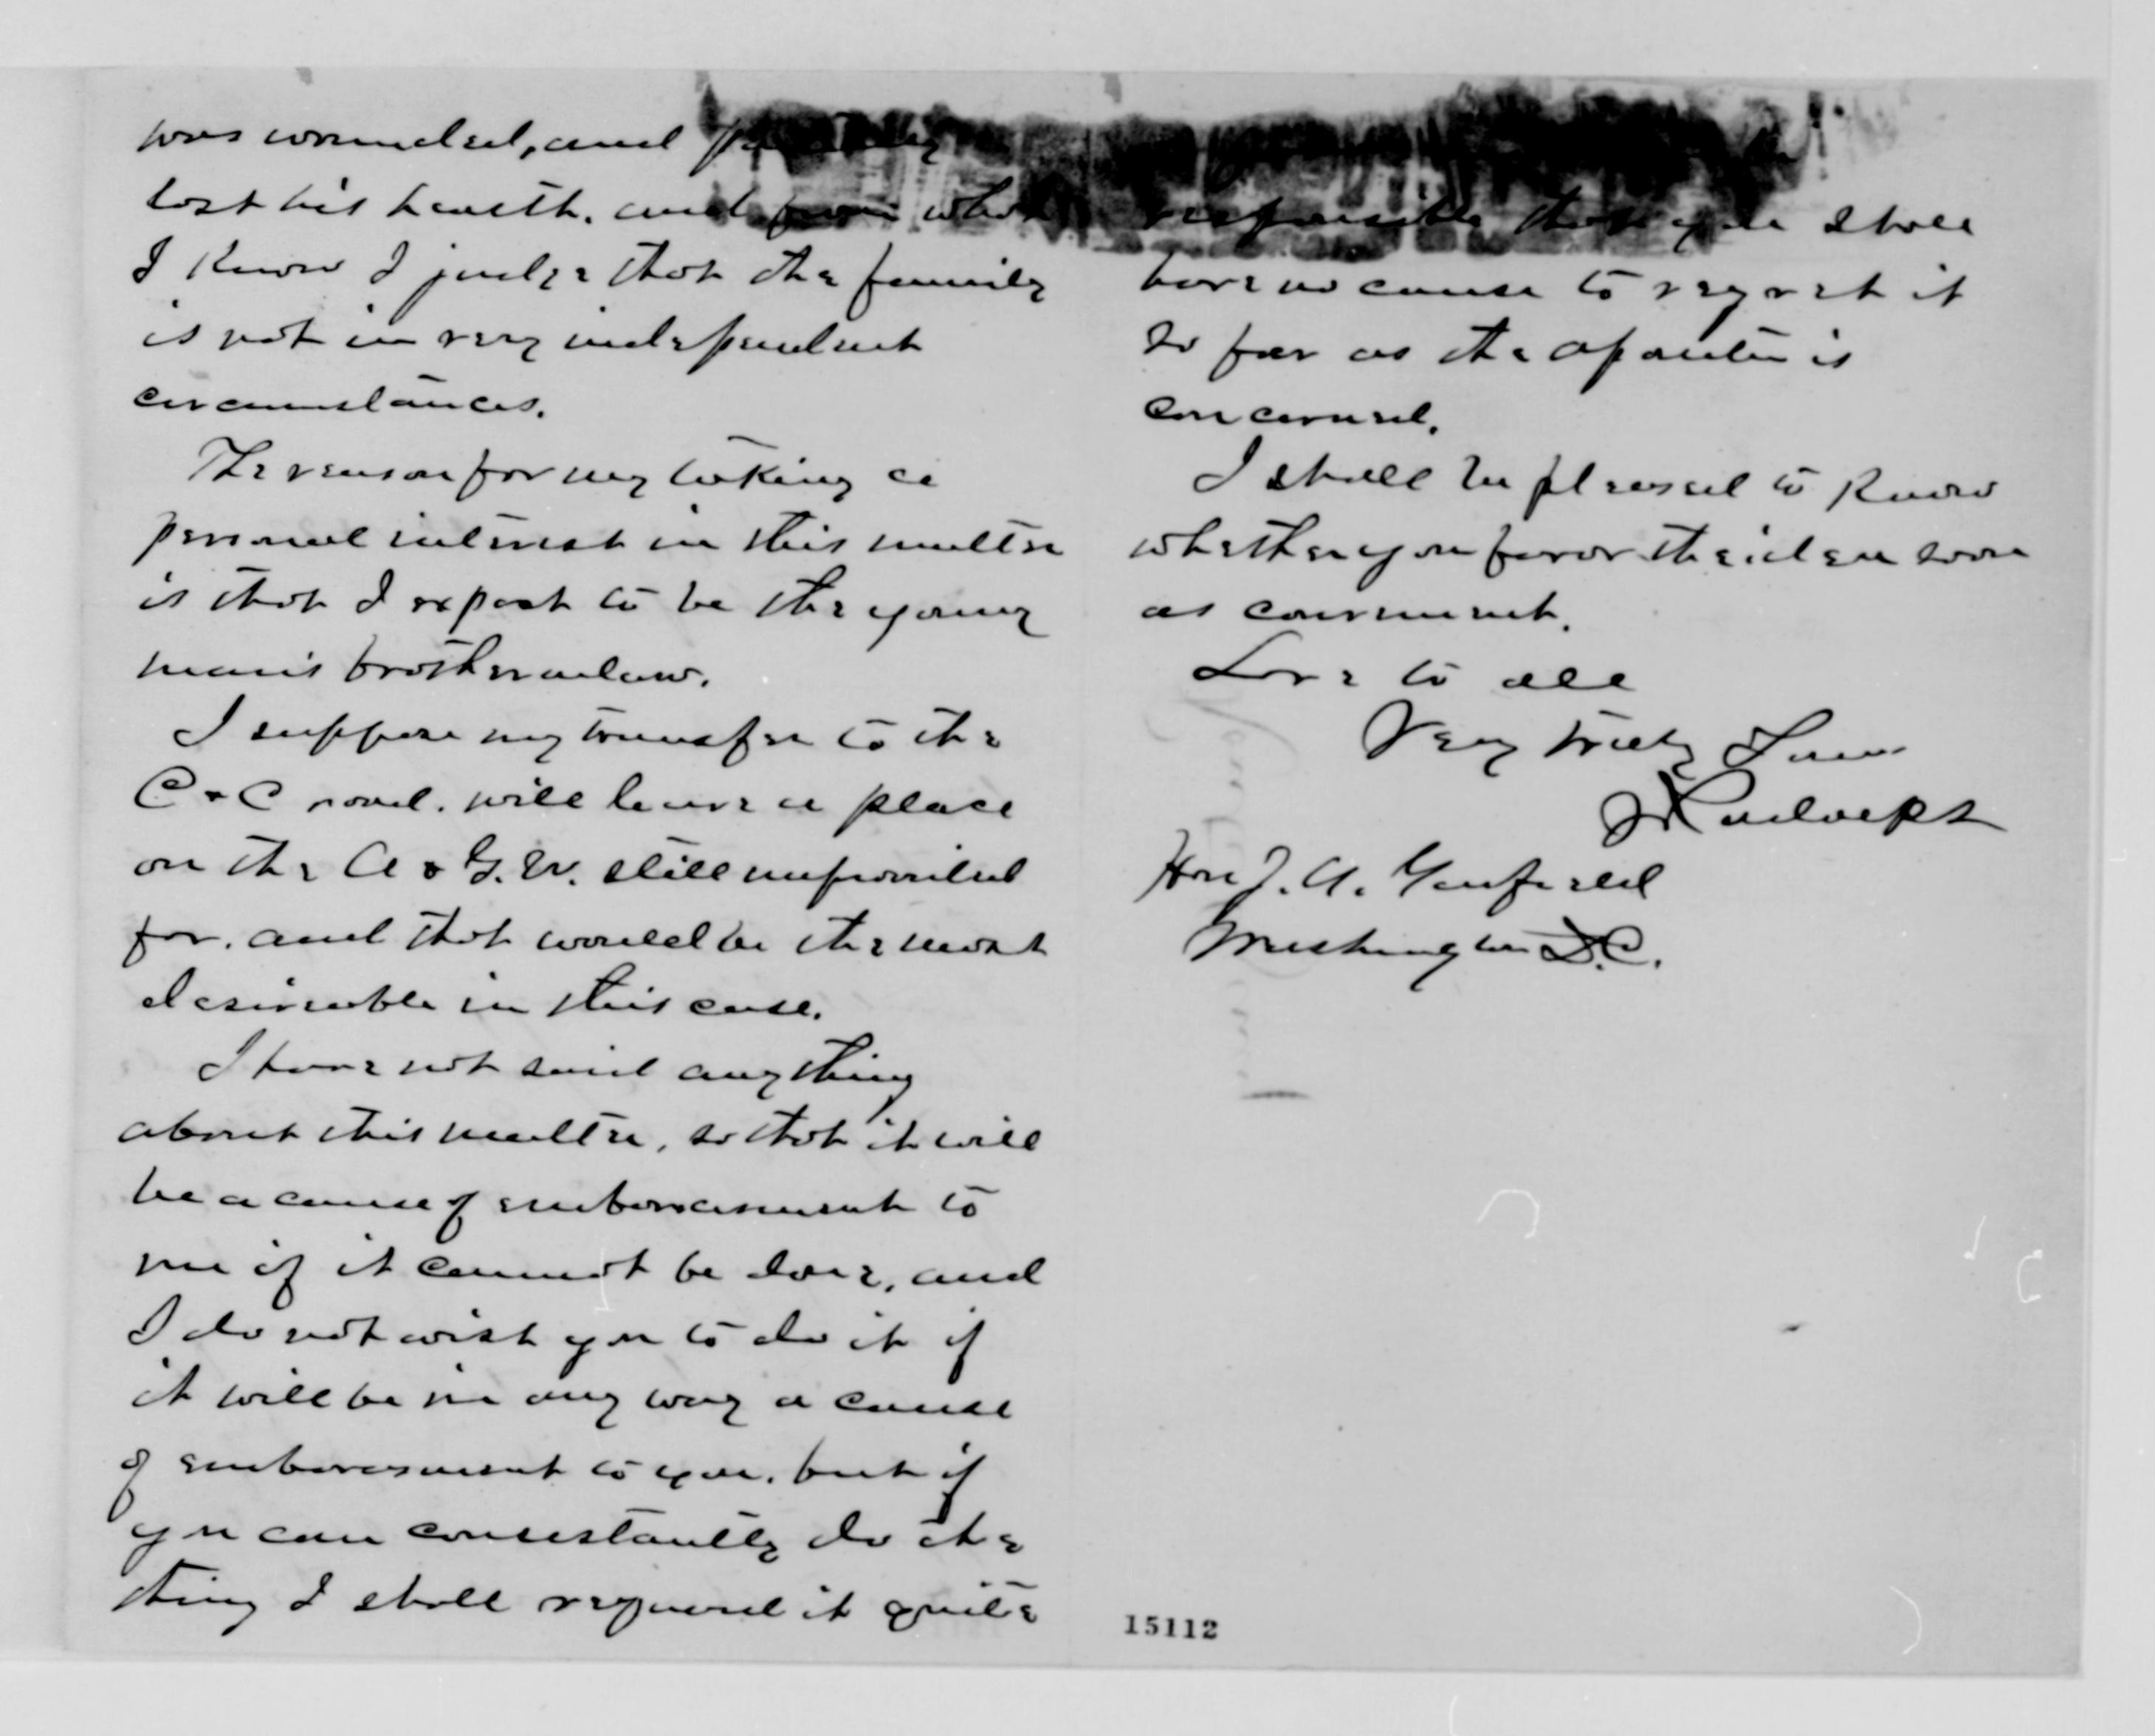 was wounded, and partially
lost his health. and from what
I know I judge that the family
is not in very independent
circumstances.
The reason for my taking a
personal interest in this matter
is that I expect to be the young
man's brotherinlaw.
I suppose my transfer to the
C & C road. will leave a place
on the A & G. W. still unprovided
for. and that would be the most
desireable in this case.
I have not said anything
about this matter, so that it will
be a cause of embarrasment to
me if it cannot be done, and
I do not wish you to do it if
it will be in any way a cause
of embarrasment to you. but if
you can consistantly do the
thing I shall regard it quite
responsible that you shall
have no cause to regret it
so far as the is
concerned.
I shall be pleased to know
whether you favor the idea soon
as convenient.
Love to all
Very truly Yours
J Rudolph
Hon J. A. Garfield
Washington D.C.
15112